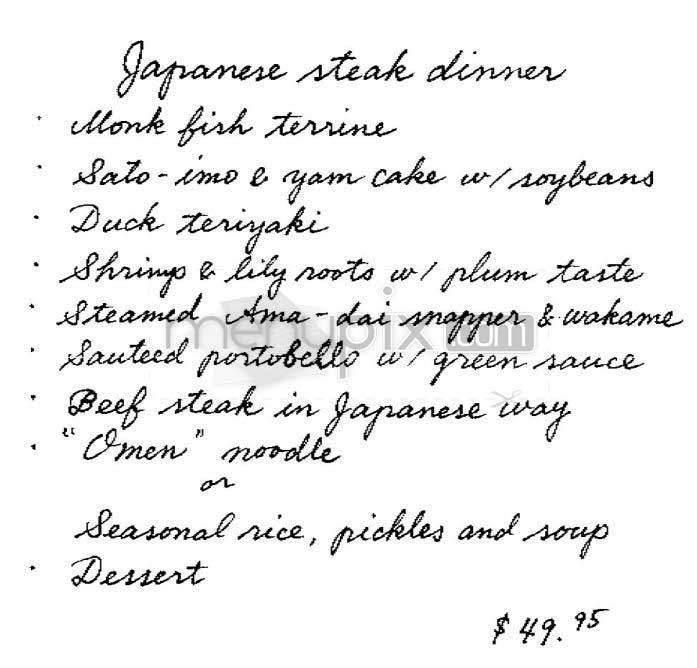 Japanese steak dinner
· Monk fish terrine
· Sato-imo & yam cake w/ soybeans
· Duck teriyaki
· Shrimp & lily roots w/ plum taste
· Steamed Ama-dai snapper & wakame
menupix.com
· Sauteed portobello w/ green sauce
· Beef steak in Japanese way
· "Omen" noodle
or
Seasonal rice, pickles and soup
· Dessert
$49.95